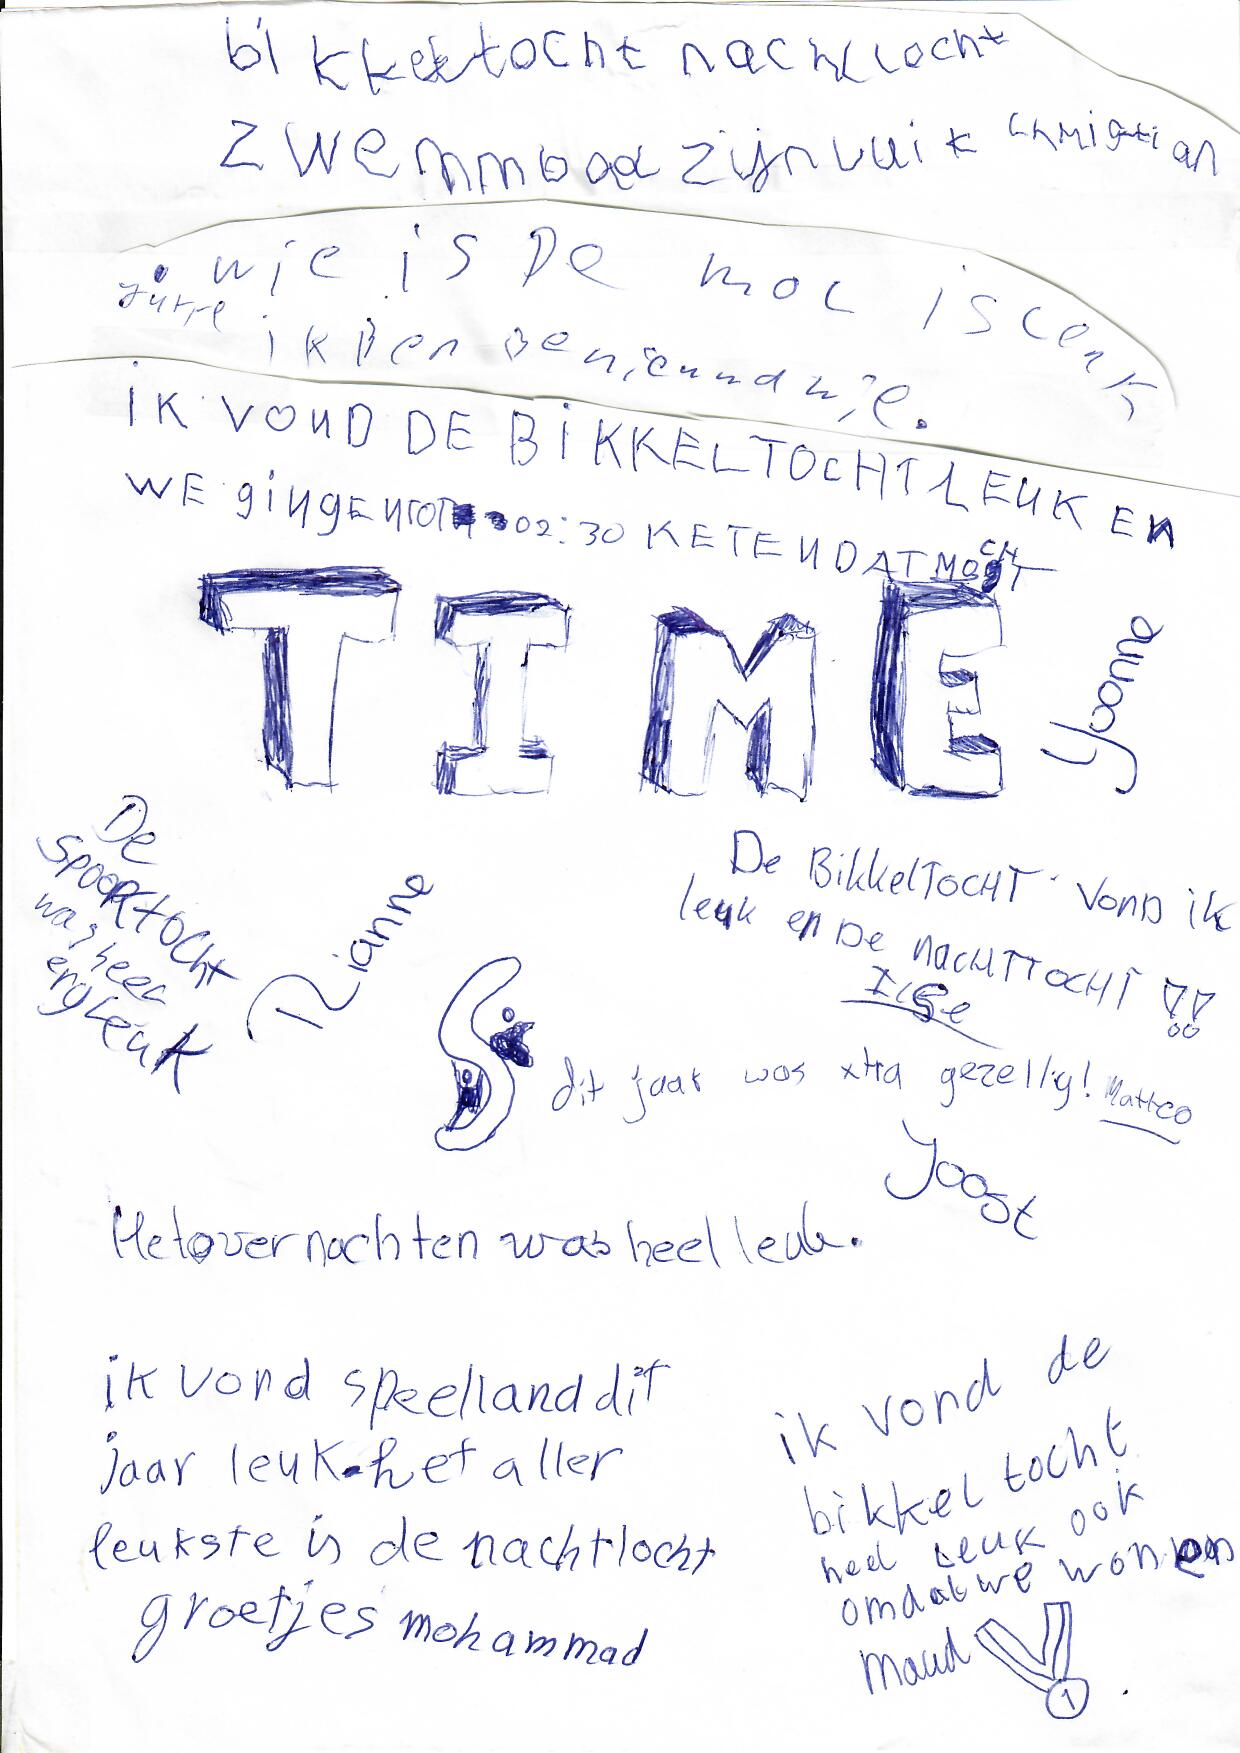 bikkeltocht nachttocht
zwemmbad zijn vuik
wie is De mol is Leuk
jurre ik Ben Benieuwd wie.
iK VOND DE BiKKELTOCHT LEUK EN
WE gingen tot 02:30 KETEN DAT MOCHT
TIME
Yvonne
De
spooktocht
was heel
erg leuk
Rianne
De BikkelTOCHT VonD ik
leuk en De nACHTTOCHT !!
Ilse
dit jaar was xtra gezellig! Matteo
Joost
Het overnachten was heel leuk.
ik vond speelland dit
jaar leuk. het aller
leukste is de nachttocht
groetjes mohammad
ik vond de
bikkel tocht
heel leuk ook
omdat we wonnen
Maud
1